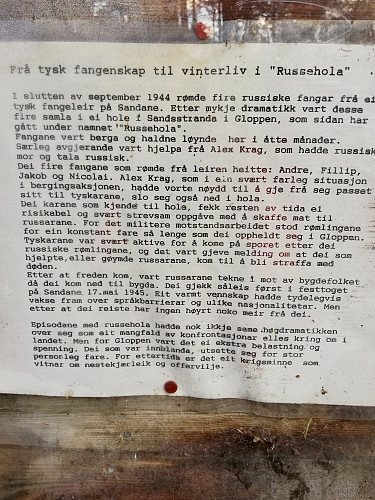 Frå tysk fangenskap til vinterliv i "Russehola"
I slutten av september 1944 rømde fire russiske fangar frå ei
tysk fangeleir på Sandane. Etter mykje dramatikk vart desse
fire samla i ei hole i Sandsstranda i Gloppen, som sidan har
gått under namnet "Russehola".
Fangane vart berga og haldne løynde her i åtte månader.
Særleg avgjerande vart hjelpa frå Alex Krag, som hadde russisk
mor og tala russisk.
Dei fire fangane som rømde frå leiren heitte: Andre, Fillip,
Jakob og Nicolai. Alex Krag, som i ein svært farleg situasjon
i bergingsaksjonen, hadde vorte nøydd til å gje frå seg passet
sitt til tyskarane, slo seg også ned i hola.
Dei karane som kjende til hola, fekk resten av tida ei
risikabel og svært strevsam oppgåve med å skaffe mat til
russarane. For det militære motstandsarbeidet stod rømlingane
for ein konstant fare så lenge som dei oppheldt seg i Gloppen.
Tyskarane var svært aktive for å kome på sporet etter dei
russiske rømlingane, og det vart gjeve melding om at dei som
hjelpte,eller gøymde russarane, kom til å bli straffa med
døden.
Etter at freden kom, vart russarane tekne i mot av bygdefolket
då dei kom ned til bygda. Dei gjekk såleis først i festtoget
på Sandane 17.mai 1945. Eit varmt vennskap hadde tydelegvis
vakse fram over språkbarrierar og ulike nasjonalitetar. Men
etter at dei reiste har ingen høyrt noko meir frå dei.
Episodene med russehola hadde nok ikkje same høgdramatikken
over seg som eit mangfald av konfrontasjonar elles kring om i
landet. Men for Gloppen vart det ei ekstra belastning og
spenning. Dei som var innblanda, utsette seg for stor
personleg fare. For ettertida er det eit krigsminne som
vitnar om nestekjærleik og offervilje.